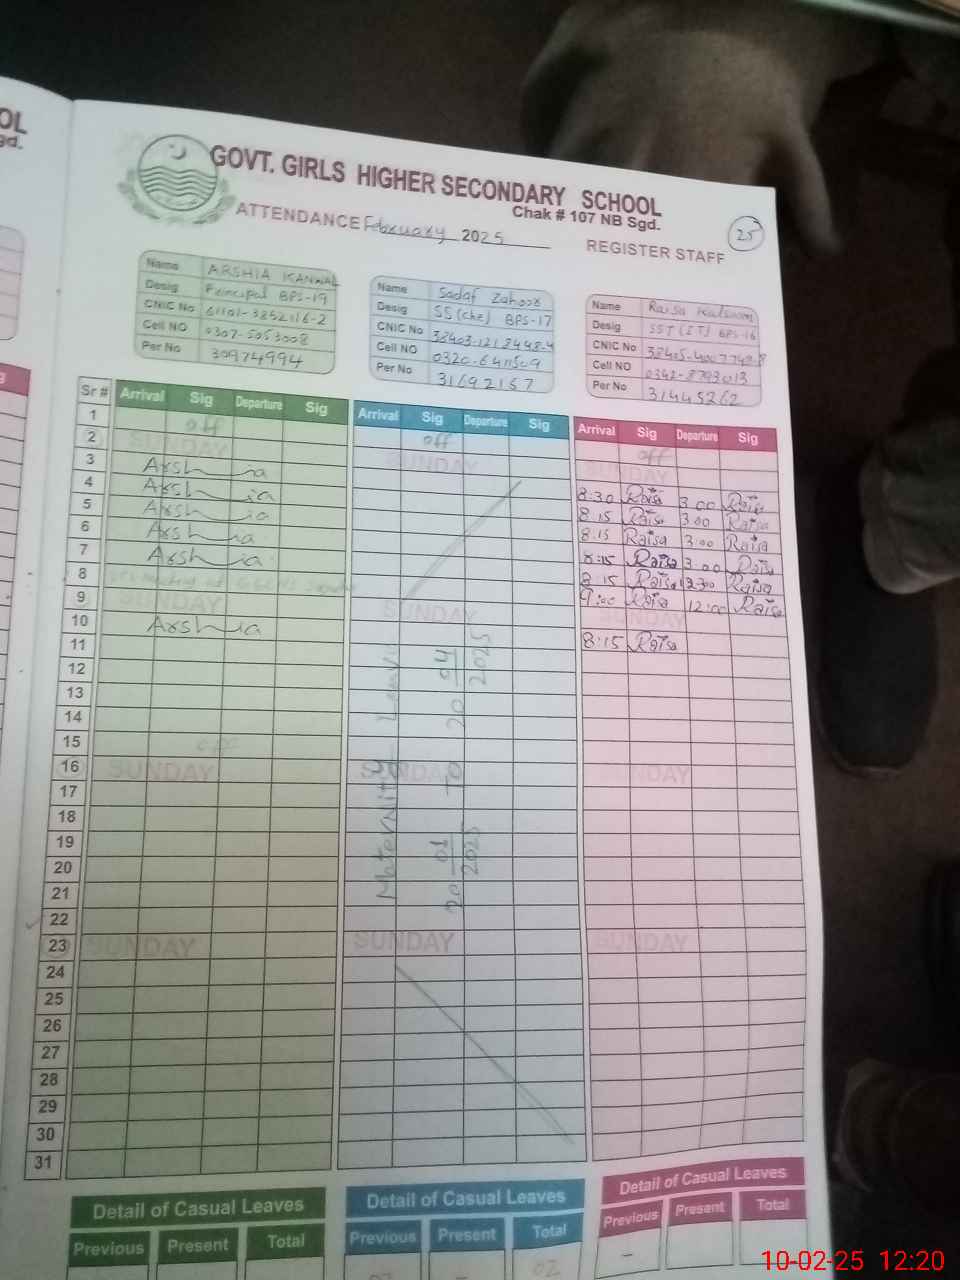 OL
gd.
GOVT. GIRLS HIGHER SECONDARY SCHOOL
Chak # 107 NB Sgd.
ATTENDANCE February 2025 REGISTER STAFF
25
Name ARSHIA KANWAL
Desig Principal BPS-19
CNIC No 61101-3852116-2
Cell NO 0307-5053008
Per No 30974994
Name Sadaf Zahoor
Desig SS (che) BPS-17
CNIC No 38403-1218448-4
Cell NO 0320-6411509
Per No 31692167
Name Raisa Kalsoom
Desig SST (IT) BPS-16
CNIC No 38405-4007748-8
Cell NO 0342-8793013
Per No 31445262
Sr # Arrival Sig Departure Sig Arrival Sig Departure Sig Arrival Sig Departure Sig
1 off off off
2 SUNDAY SUNDAY SUNDAY
3 Arshia 8:30 Raisa 3:00 Raisa
4 Arshia 8:15 Raisa 3:00 Raisa
5 Arshia 8:15 Raisa 3:00 Raisa
6 Arshia 8:15 Raisa 3:00 Raisa
7 Arshia 8:15 Raisa Raisa
8 9:00 Raisa 12:00 Raisa
9 SUNDAY SUNDAY
10 Arshia 8:15 Raisa
11
12
13
14
15 off
16 SUNDAY SUNDAY SUNDAY
17
18
19
20
21
22
23 SUNDAY SUNDAY SUNDAY
24
25
26
27
28
29
30
31
Maternity Leave
20 01 2025 To 20 04 2025
Detail of Casual Leaves Detail of Casual Leaves Detail of Casual Leaves
Previous Present Total Previous Present Total Previous Present Total
02 - 02 -
10-02-25 12:20